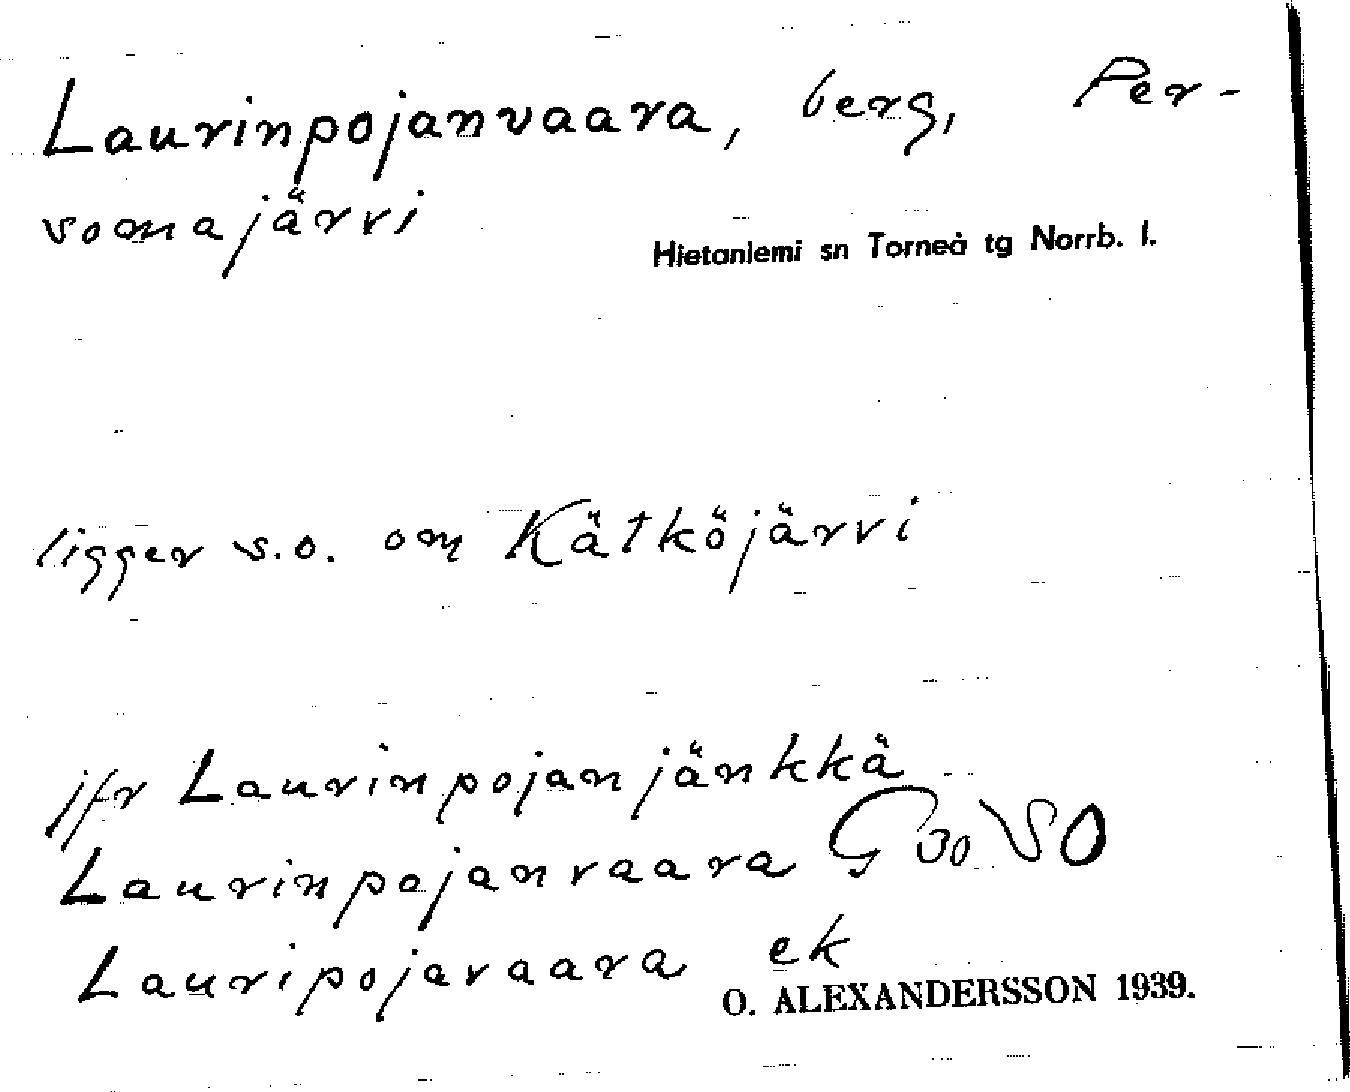 Laurinpojanvaara, berg, Per-
somajärvi
Hietaniemi sn Torneå tg Norrb. l.
ligger s.o. om Kätköjärvi
jfr Laurinpojanjänkkä
Laurinpojanvaara G 30 SO
Lauripojavaara ek
O. ALEXANDERSSON 1939.